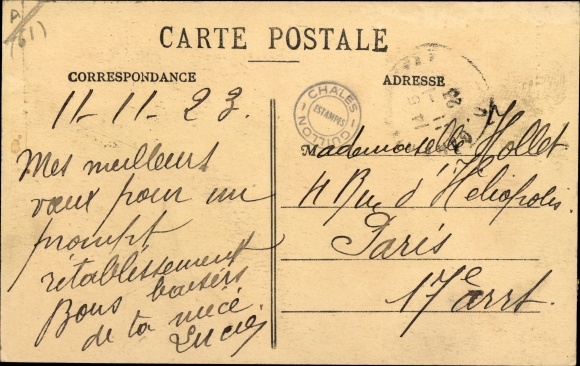 A
(61)
CARTE POSTALE
CORRESPONDANCE
ADRESSE
11-11-23.
Mes meilleurs
vœux pour un
prompt
rétablissement
Bons baisers
de ta nièce
Lucie
CHALES
ESTAMPES
GUILLON
Mademoiselle Hollet
4 Rue d'Héliopolis
Paris
17e arrt.